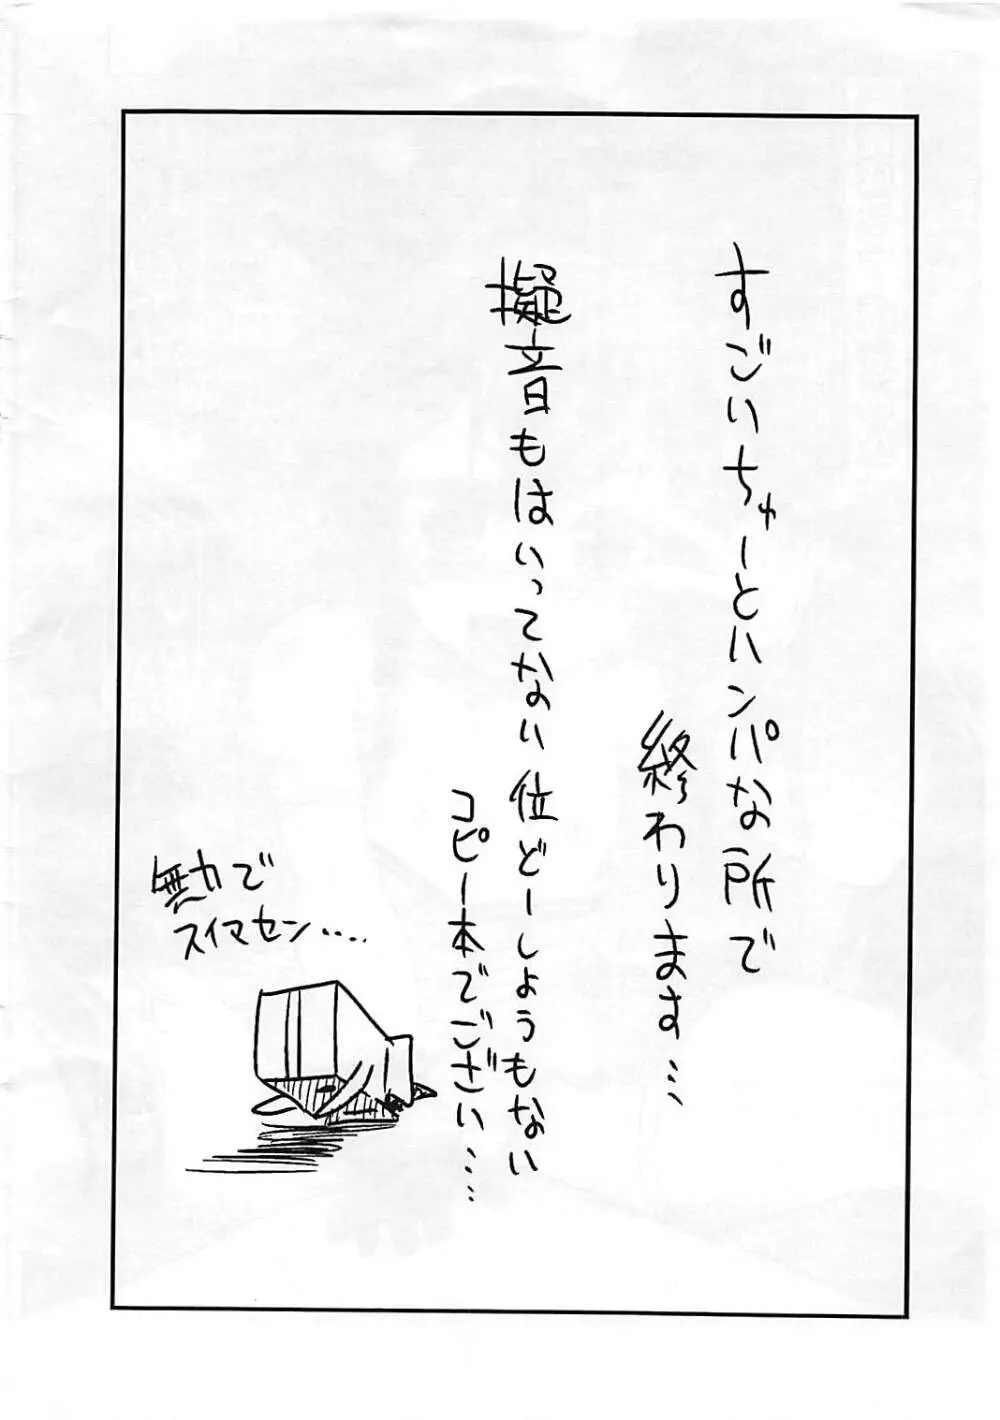 すごいちゅーとハンパな所で
終わります…
擬音もはいってない位どーしょうもない
コピー本でござい……
無力で
スイマセン....